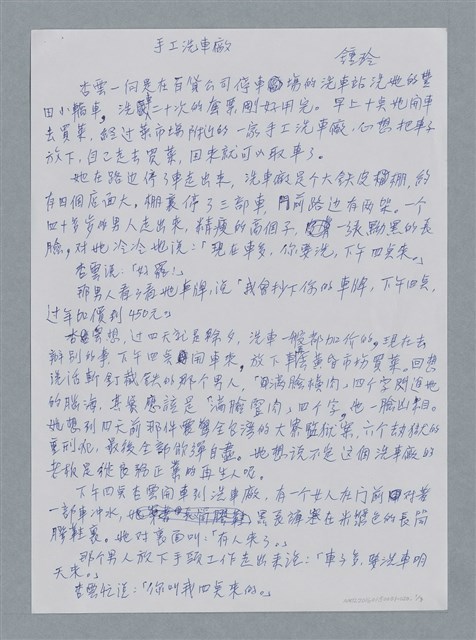 手工洗車廠
鍾玲
杏雲一向是在百貨公司停車場的洗車站洗她的豐
田小轎車,洗車二十次的套票剛好用完。早上十點她開車
去買菜,經過菜市場附近的一家手工洗車廠,心想把車子
放下,自己走去買菜,回來就可以取車了。
她在路邊停了車走出來,洗車廠是个大鉄皮棚,約
有四個店面大。棚裏停了三部車,門前路边有兩架。一个
四十多歲的男人走出來,精瘦的高個子,一張黝黑的長
臉,對她冷冷地說:「現在車多,你要洗,下午四点來。」
杏雲說:「好囉!」
那男人看了看她車牌,說「我會抄下你的車牌,下午四点,
過年加價到450元。」
杏雲想,过四天就是除夕,洗車一般都加价的。現在去
辦別的事,下午四点開車來,放下車去黃昏市場買菜。回想
說話斬釘截鉄的那个男人,「滿臉橫肉」四个字閃過她
的腦海,其實應該是「滿臉**肉」四个字,他一臉凶相。
她想到四天前那件震驚全台灣的大寮監獄案,六个劫獄的
重刑犯,最後全部飲彈自盡。她想說不定這個洗車廠的
老板是從良務正業的再生人呢。
下午四点杏雲開車到洗車廠,有一个女人在门前对著
一部車冲水,黑長褲塞在米色的長筒
膠鞋裏。她对裏面叫:「有人來了。」
那个男人放下手頭工作走出來說:「車子多,要洗車明
天來。」
杏雲忙說:「你叫我四点來的。」